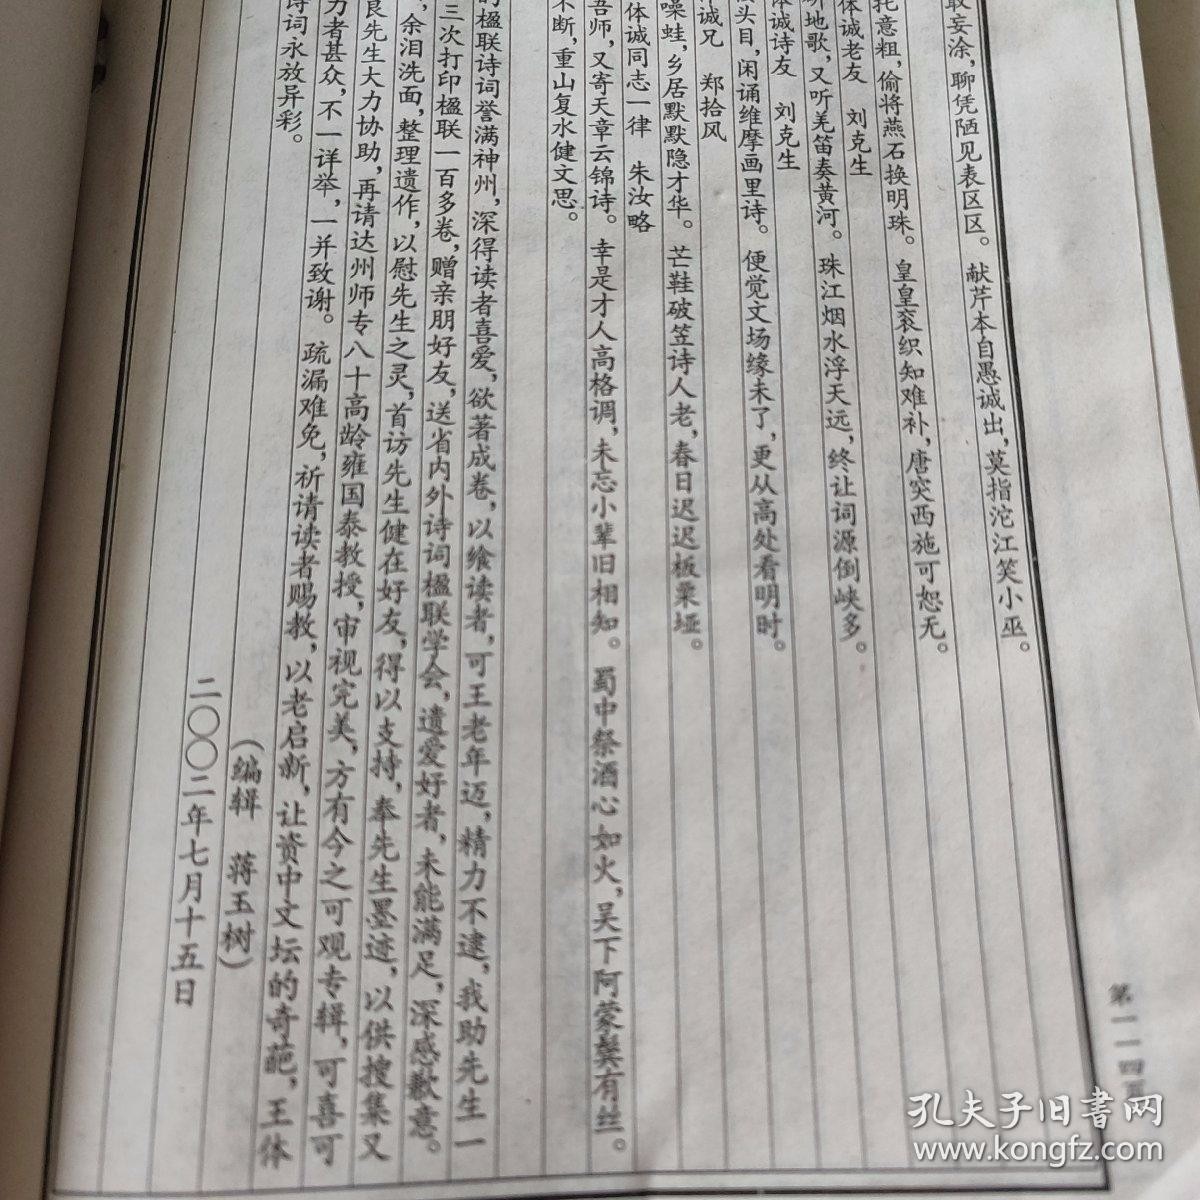 取妄涂，聊凭陋见表区区。献芹本自愚诚出，莫指沱江笑小巫。
托意粗，偷将燕石换明珠。皇皇衮织知难补，唐突西施可恕无。
体诚老友　刘克生
听地歌，又听羌笛奏黄河。珠江烟水浮天远，终让词源倒峡多。
体诚诗友　刘克生
头目，闲诵维摩画里诗。便觉文场缘未了，更从高处看明时。
诚兄　郑拾风
噪蛙，乡居默默隐才华。芒鞋破笠诗人老，春日迟迟板栗垭。
体诚同志一律　朱汝略
吾师，又寄天章云锦诗。幸是才人高格调，未忘小辈旧相知。蜀中祭酒心如火，吴下阿蒙鬓有丝。
不断，重山复水健文思。
的楹联诗词誉满神州，深得读者喜爱，欲著成卷，以飨读者，可王老年迈，精力不逮，我助先生一
三次打印楹联一百多卷，赠亲朋好友，送省内外诗词楹联学会，遗爱好者，未能满足，深感歉意。
，余泪洗面，整理遗作，以慰先生之灵，首访先生健在好友，得以支持，奉先生墨迹，以供搜集又
良先生大力协助，再请达州师专八十高龄雍国泰教授，审视完美，方有今之可观专辑，可喜可
力者甚众，不一详举，一并致谢。疏漏难免，祈请读者赐教，以老启新，让资中文坛的奇葩，王体
诗词永放异彩。
（编辑　蒋玉树）
二〇〇二年七月十五日
第一一四页
孔夫子旧书网
www.kongfz.com